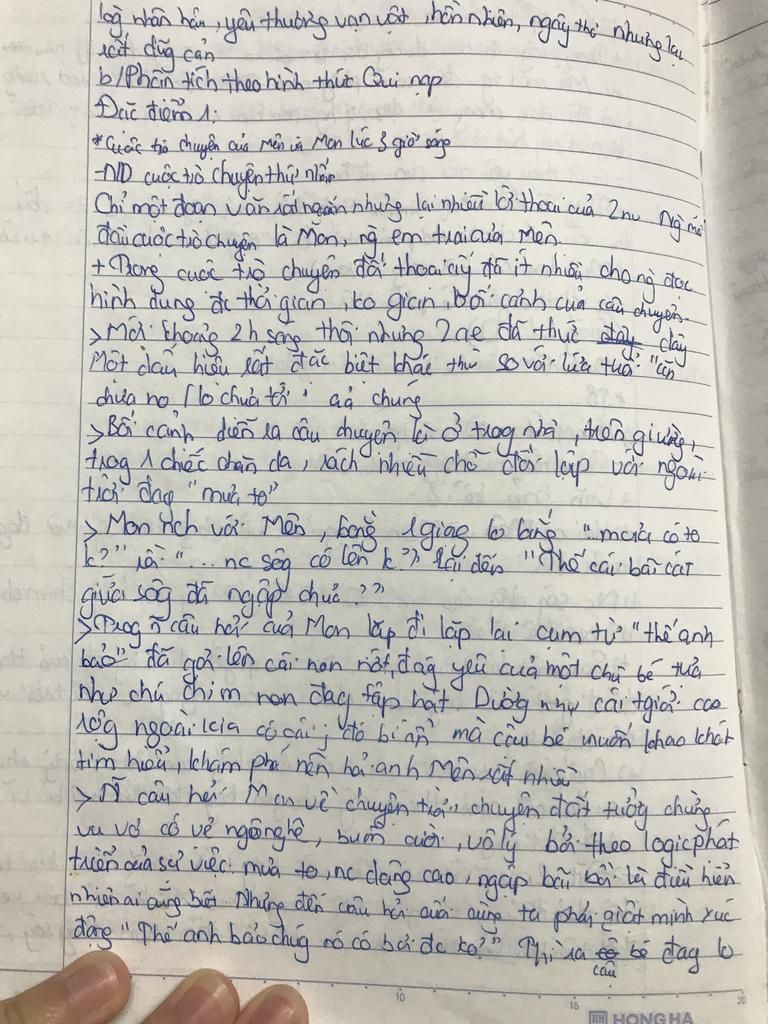 lòg nhân hậu, yêu thương vạn vật, hồn nhiên, ngây thơ nhưng lại
rất dũg cảm
b/Phân tích theo hình thức Qui nạp
Đặc điểm 1:
*Cuộc trò chuyện của Mên và Mon lúc 3 giờ sáng
-ND cuộc trò chuyện thứ nhất
Chỉ một đoạn văn rất ngắn nhưng lại nhiều lời thoại của 2 nv. Ng mở
đầu cuộc trò chuyện là Mon, ng em trai của Mên.
+ Trong cuộc trò chuyện đối thoại ấy đã ít nhiều cho ng đọc
hình dung đc thời gian, ko gian, bối cảnh của câu chuyện.
> Mới khoảng 2h sáng thôi nhưng 2 ae đã thức dậy
Một dấu hiệu rất đặc biệt khác thư so với lứa tuổi "ăn
chưa no / lo chưa tới" của chúng
> Bối cảnh diễn ra câu chuyện là ở trog nhà, trên giường,
trog 1 chiếc chăn dạ, rách nhiều chỗ đối lập với ngoài
trời đag "mưa to"
> Mon với Mên, bằng 1 giọg lo lắng "...mưa có to
k?" rồi "... nc sôg có lên k"? lại đến "Thế cái bãi cát
giữa sôg đã ngập chưa??"
> Trog ~ câu hỏi của Mon lặp đi lặp lại cụm từ "thế anh
bảo" đã gợi lên cái non nớt, đág yêu của một chú bé tựa
như chú chim non đag tập hát. Dườg như cái tgiới cao
rộg ngoài kia có cái j đó bí ẩn mà cậu bé muốn khao khát
tìm hiểu, khám phá nên hỏi anh Mên rất nhiều
> ~ câu hỏi Mon về chuyện trời, chuyện đất tưởg chừng
vu vơ có vẻ ngô nghê, buồn cười, vô lý bởi theo logic phát
triển của sự việc: mưa to, nc dâng cao, ngập bãi bồi là điều hiển
nhiên ai cũng biết. Nhưng đến câu hỏi cuối cùng ta phải giật mình xúc
động "Thế anh bảo chúg nó có bơi đc ko?" Thì ra cậu bé đag lo
10 15 20
HH HONG HA